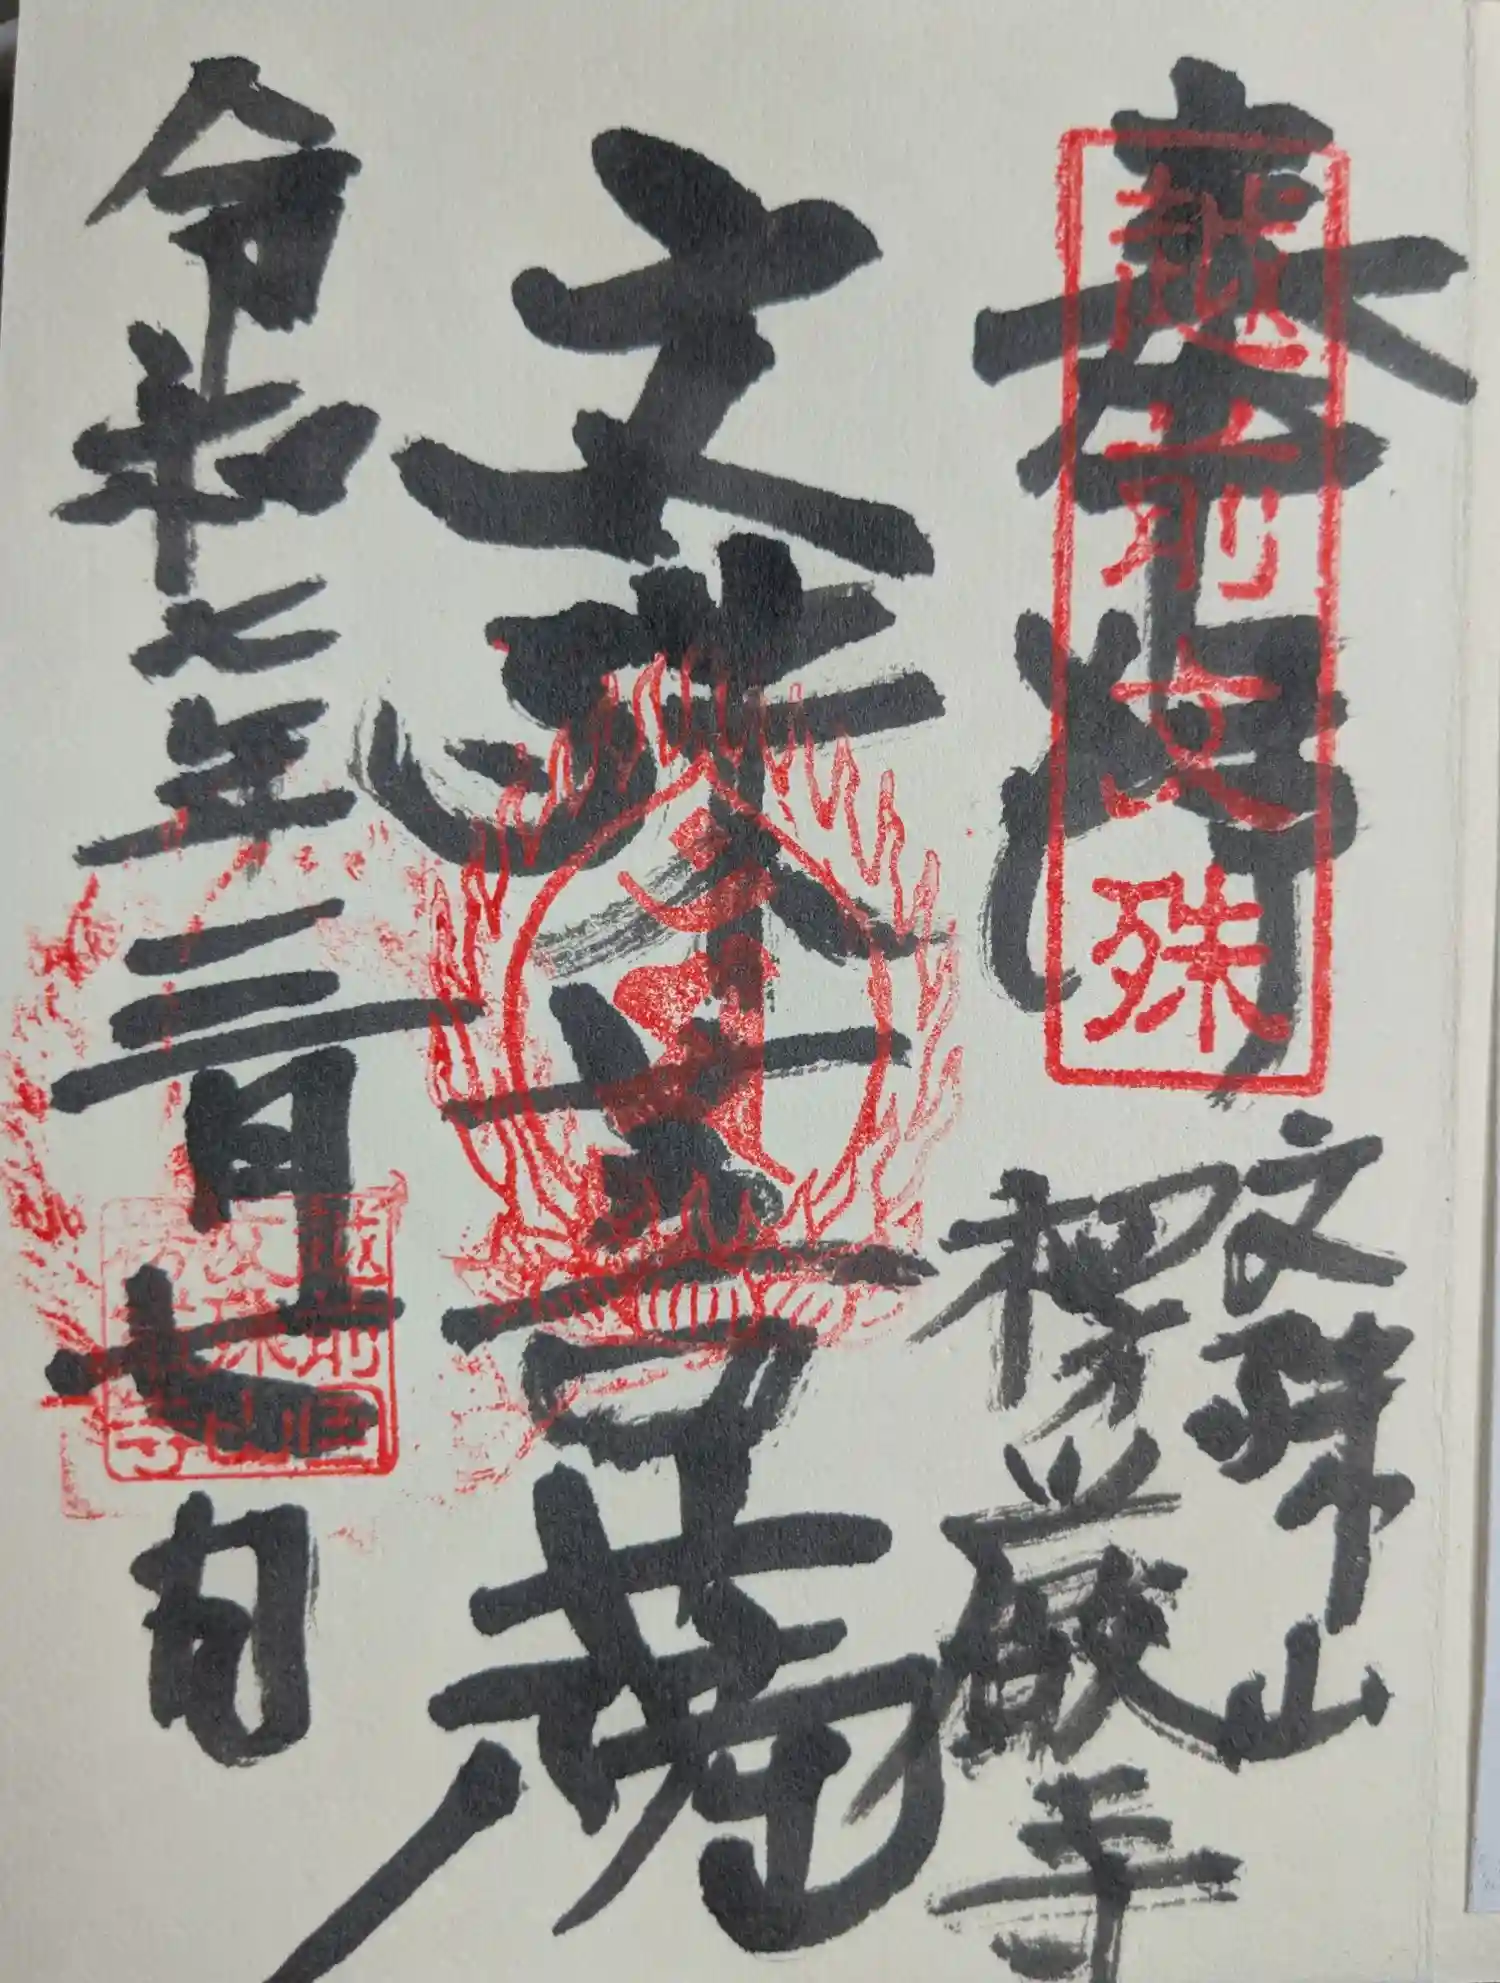 奉拝
越前文殊
文殊山
楞厳寺
文殊大菩薩
令和七年三月七日
越前
文殊
山
寺